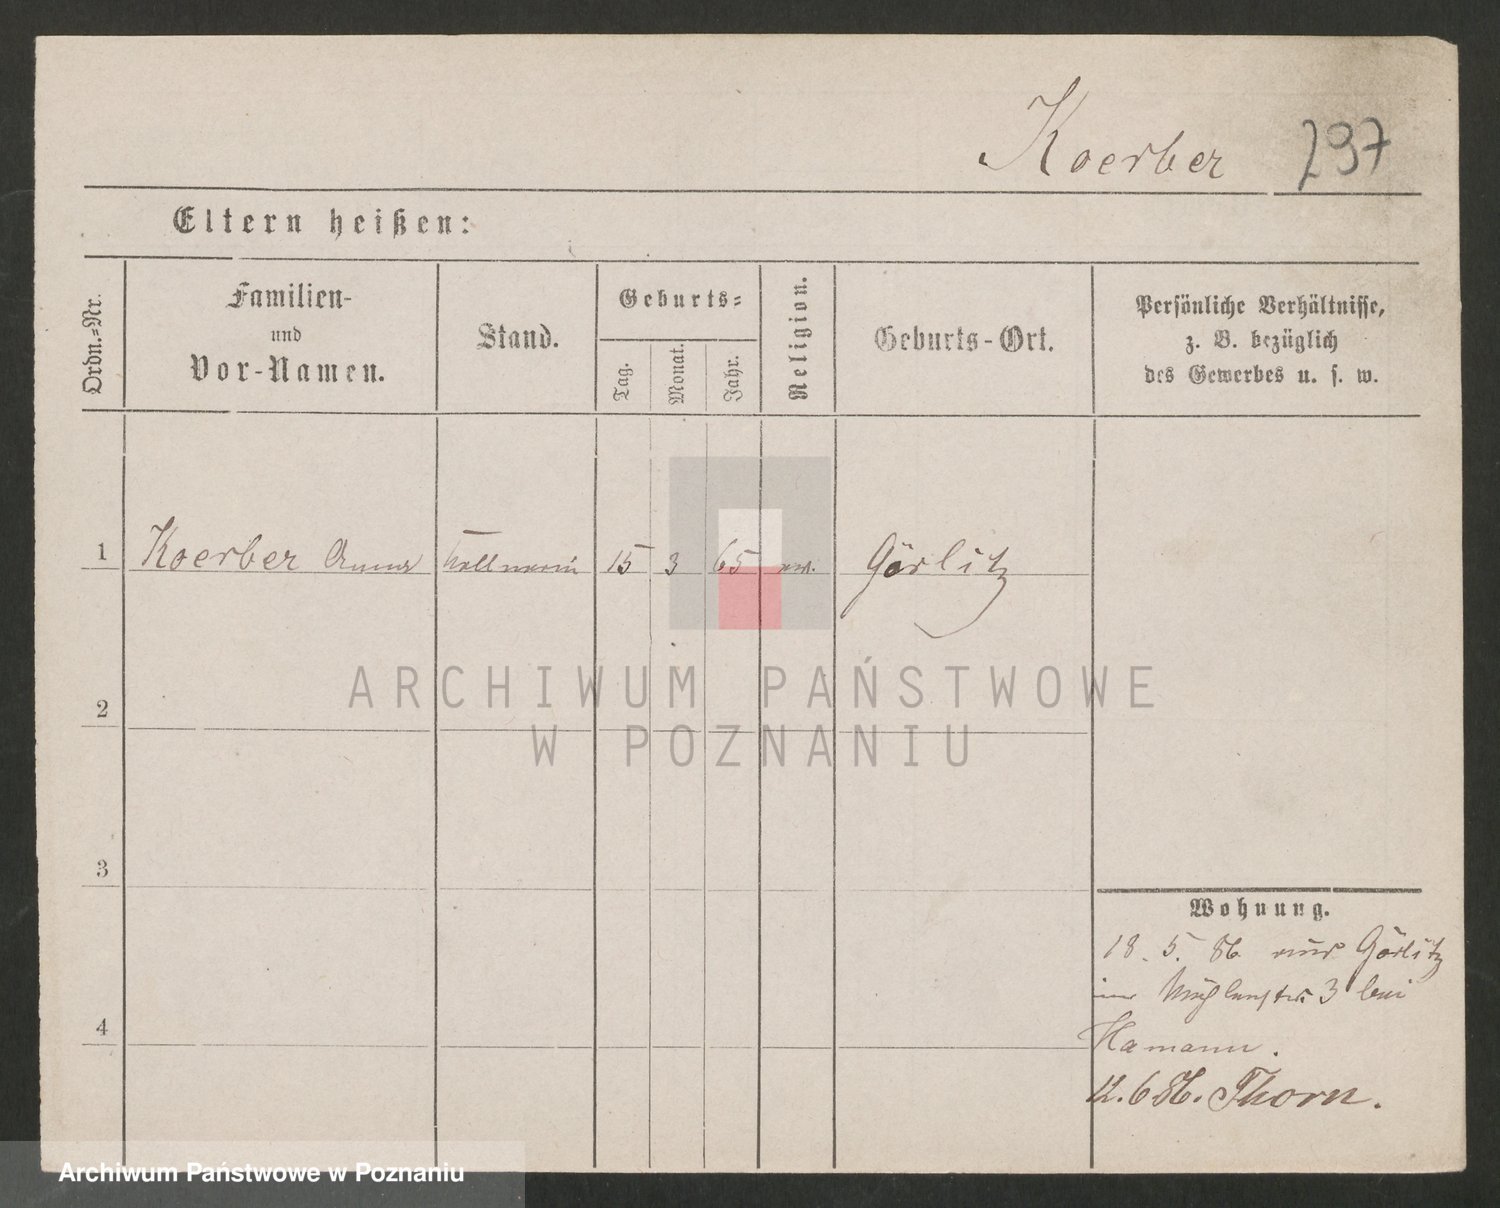 Koerber 297
Eltern heißen:
Ordn.-Nr.
Familien-
und
Vor-Namen.
Stand.
Geburts-
Tag.
Monat.
Jahr.
Religion.
Geburts-Ort.
Persönliche Verhältnisse,
z. B. bezüglich
des Gewerbes u. s. w.
1 Koerber Anna Kellnerin 15 3 65 ev. Görlitz
2
3
4
ARCHIWUM PAŃSTWOWE
W POZNANIU
Wohnung.
18. 5. 86. aus Görlitz
3 bei
Hamann.
12. 6 86. Thorn.
Archiwum Państwowe w Poznaniu